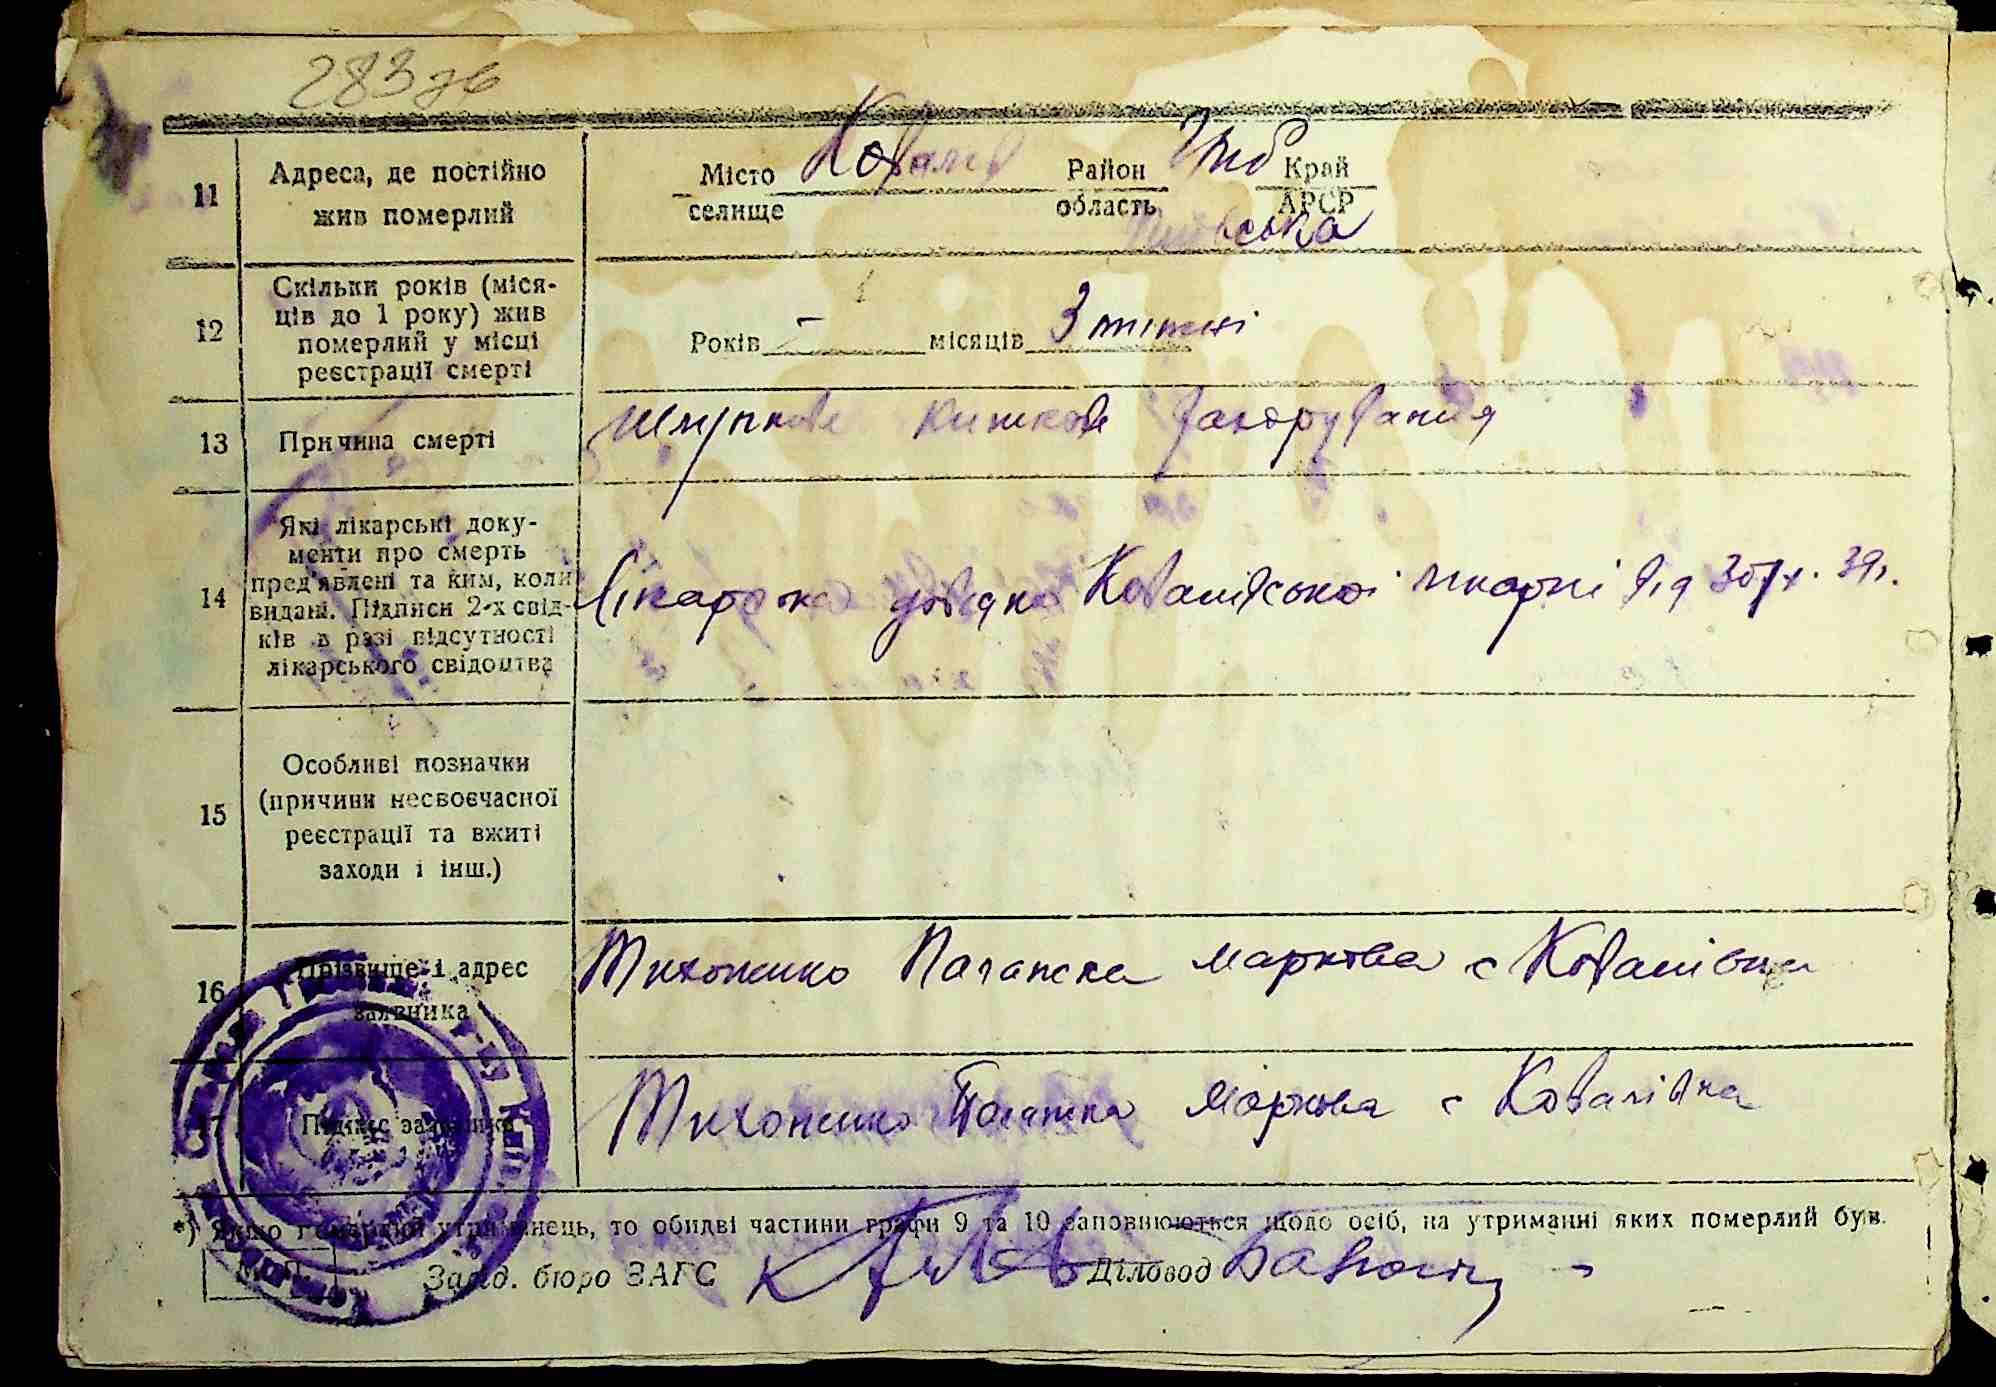 283
11 Адреса, де постійно жив померлий Місто селище Ковалів Район область Край АРСР
ська
12 Скільки років (міся-
ців до 1 року) жив
померлий у місці
реєстрації смерті
Років — місяців 3 тижні
13 Причина смерті Шлункове кишкове захорування
14 Які лікарські доку-
менти про смерть
пред'явлені та ким, коли
видані. Підписи 2-х свід-
ків в разі відсутності
лікарського свідоцтва
Лікарська довідка Ковалівської лікарні від 39р.
15 Особливі позначки
(причини несвоєчасної
реєстрації та вжиті
заходи і інш.)
16 Прізвище і адрес
заявника
Тихоненко Маркова с Ковалівка
17 Підпис заявника Тихоненко Маркова с Ковалівка
*) Якщо померлий утриманець, то обидві частини графи 9 та 10 заповнюються щодо осіб, на утриманні яких померлий був.
М. П. Завід. бюро ЗАГС Діловод